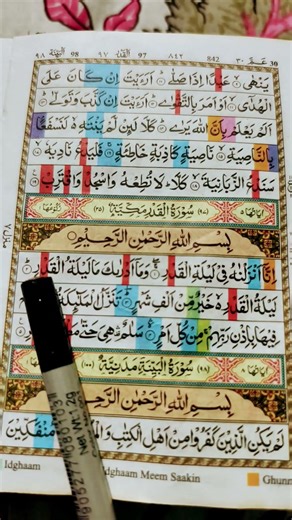 ٩٨ البينة 98 ٩٧ القدر 97 ٨٤٢ 842 عم ٣٠ 30
يَنْهٰى ۙ عَبْدًا اِذَا صَلّٰى ؕ اَرَءَيْتَ اِنْ كَانَ عَلَى
الْهُدٰٓى ۙ اَوْ اَمَرَ بِالتَّقْوٰى ؕ اَرَءَيْتَ اِنْ كَذَّبَ وَتَوَلّٰى ؕ
اَلَمْ يَعْلَمْ بِاَنَّ اللّٰهَ يَرٰى ؕ كَلَّا لَئِنْ لَّمْ يَنْتَهِ ۙ لَنَسْفَعًۢا
بِالنَّاصِيَةِ ۙ نَاصِيَةٍ كَاذِبَةٍ خَاطِئَةٍ ۚ فَلْيَدْعُ نَادِيَهٗ ۙ
سَنَدْعُ الزَّبَانِيَةَ ۙ كَلَّا ؕ لَا تُطِعْهُ وَاسْجُدْ وَاقْتَرِبْ ۩
اٰيَاتُهَا ٥ (٩٧) سُوْرَةُ الْقَدْرِ مَكِّيَّةٌ (٢٥)
بِسْمِ اللّٰهِ الرَّحْمٰنِ الرَّحِيْمِ
اِنَّآ اَنْزَلْنٰهُ فِيْ لَيْلَةِ الْقَدْرِ ۚ وَمَآ اَدْرٰىكَ مَا لَيْلَةُ الْقَدْرِ ؕ
لَيْلَةُ الْقَدْرِ ۙ خَيْرٌ مِّنْ اَلْفِ شَهْرٍ ؕ تَنَزَّلُ الْمَلٰٓئِكَةُ
فِيْهَا بِاِذْنِ رَبِّهِمْ ۚ مِنْ كُلِّ اَمْرٍ ۙ سَلٰمٌ ۛ هِيَ حَتّٰى
اٰيَاتُهَا ٨ (٩٨) سُوْرَةُ الْبَيِّنَةِ مَدَنِيَّةٌ (١٠٠)
بِسْمِ اللّٰهِ الرَّحْمٰنِ الرَّحِيْمِ
لَمْ يَكُنِ الَّذِيْنَ كَفَرُوْا مِنْ اَهْلِ الْكِتٰبِ مُنْفَكِّيْنَ
Idghaam Idghaam Meem Saakin Ghunn